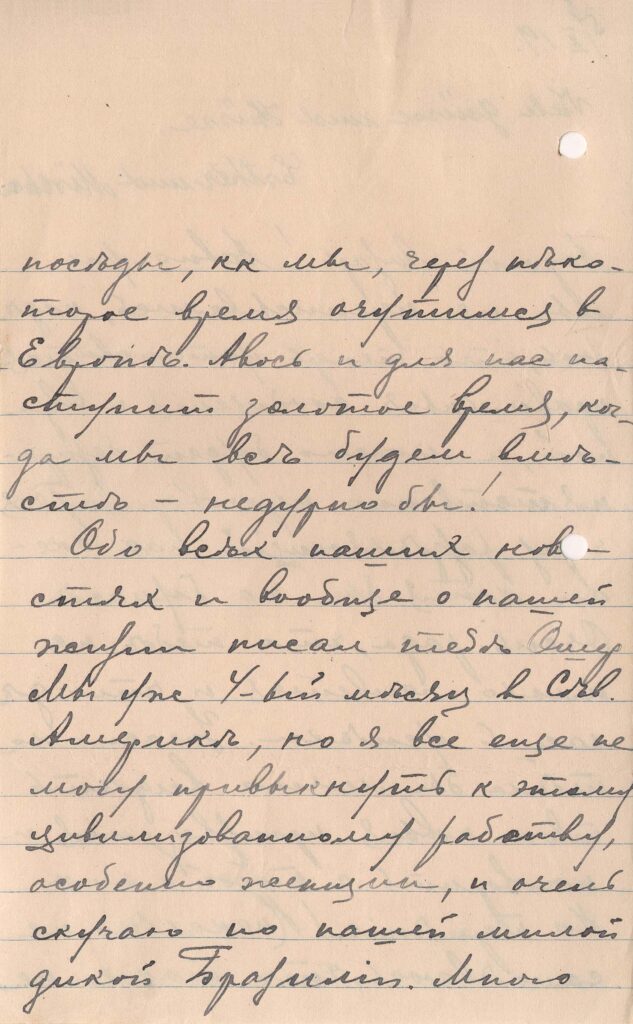 послѣды, кк мы, через нѣко-
торое время очутимся в
Европѣ. Авось и для нас на-
ступит золотое время, ког-
да мы всѣ будем вмѣ-
стѣ – недурно бы!
Обо всѣх наших ново-
стях и вообще о нашей
жизни писал тебѣ
Мы уж 4-ый мѣсяц в Сѣв.
Америкѣ, но я все еще не
могу привыкнуть к этому
цивилизованному рабству,
особенно женщин, и очень
скучаю по нашей милой
дикой Бразиліи. Много